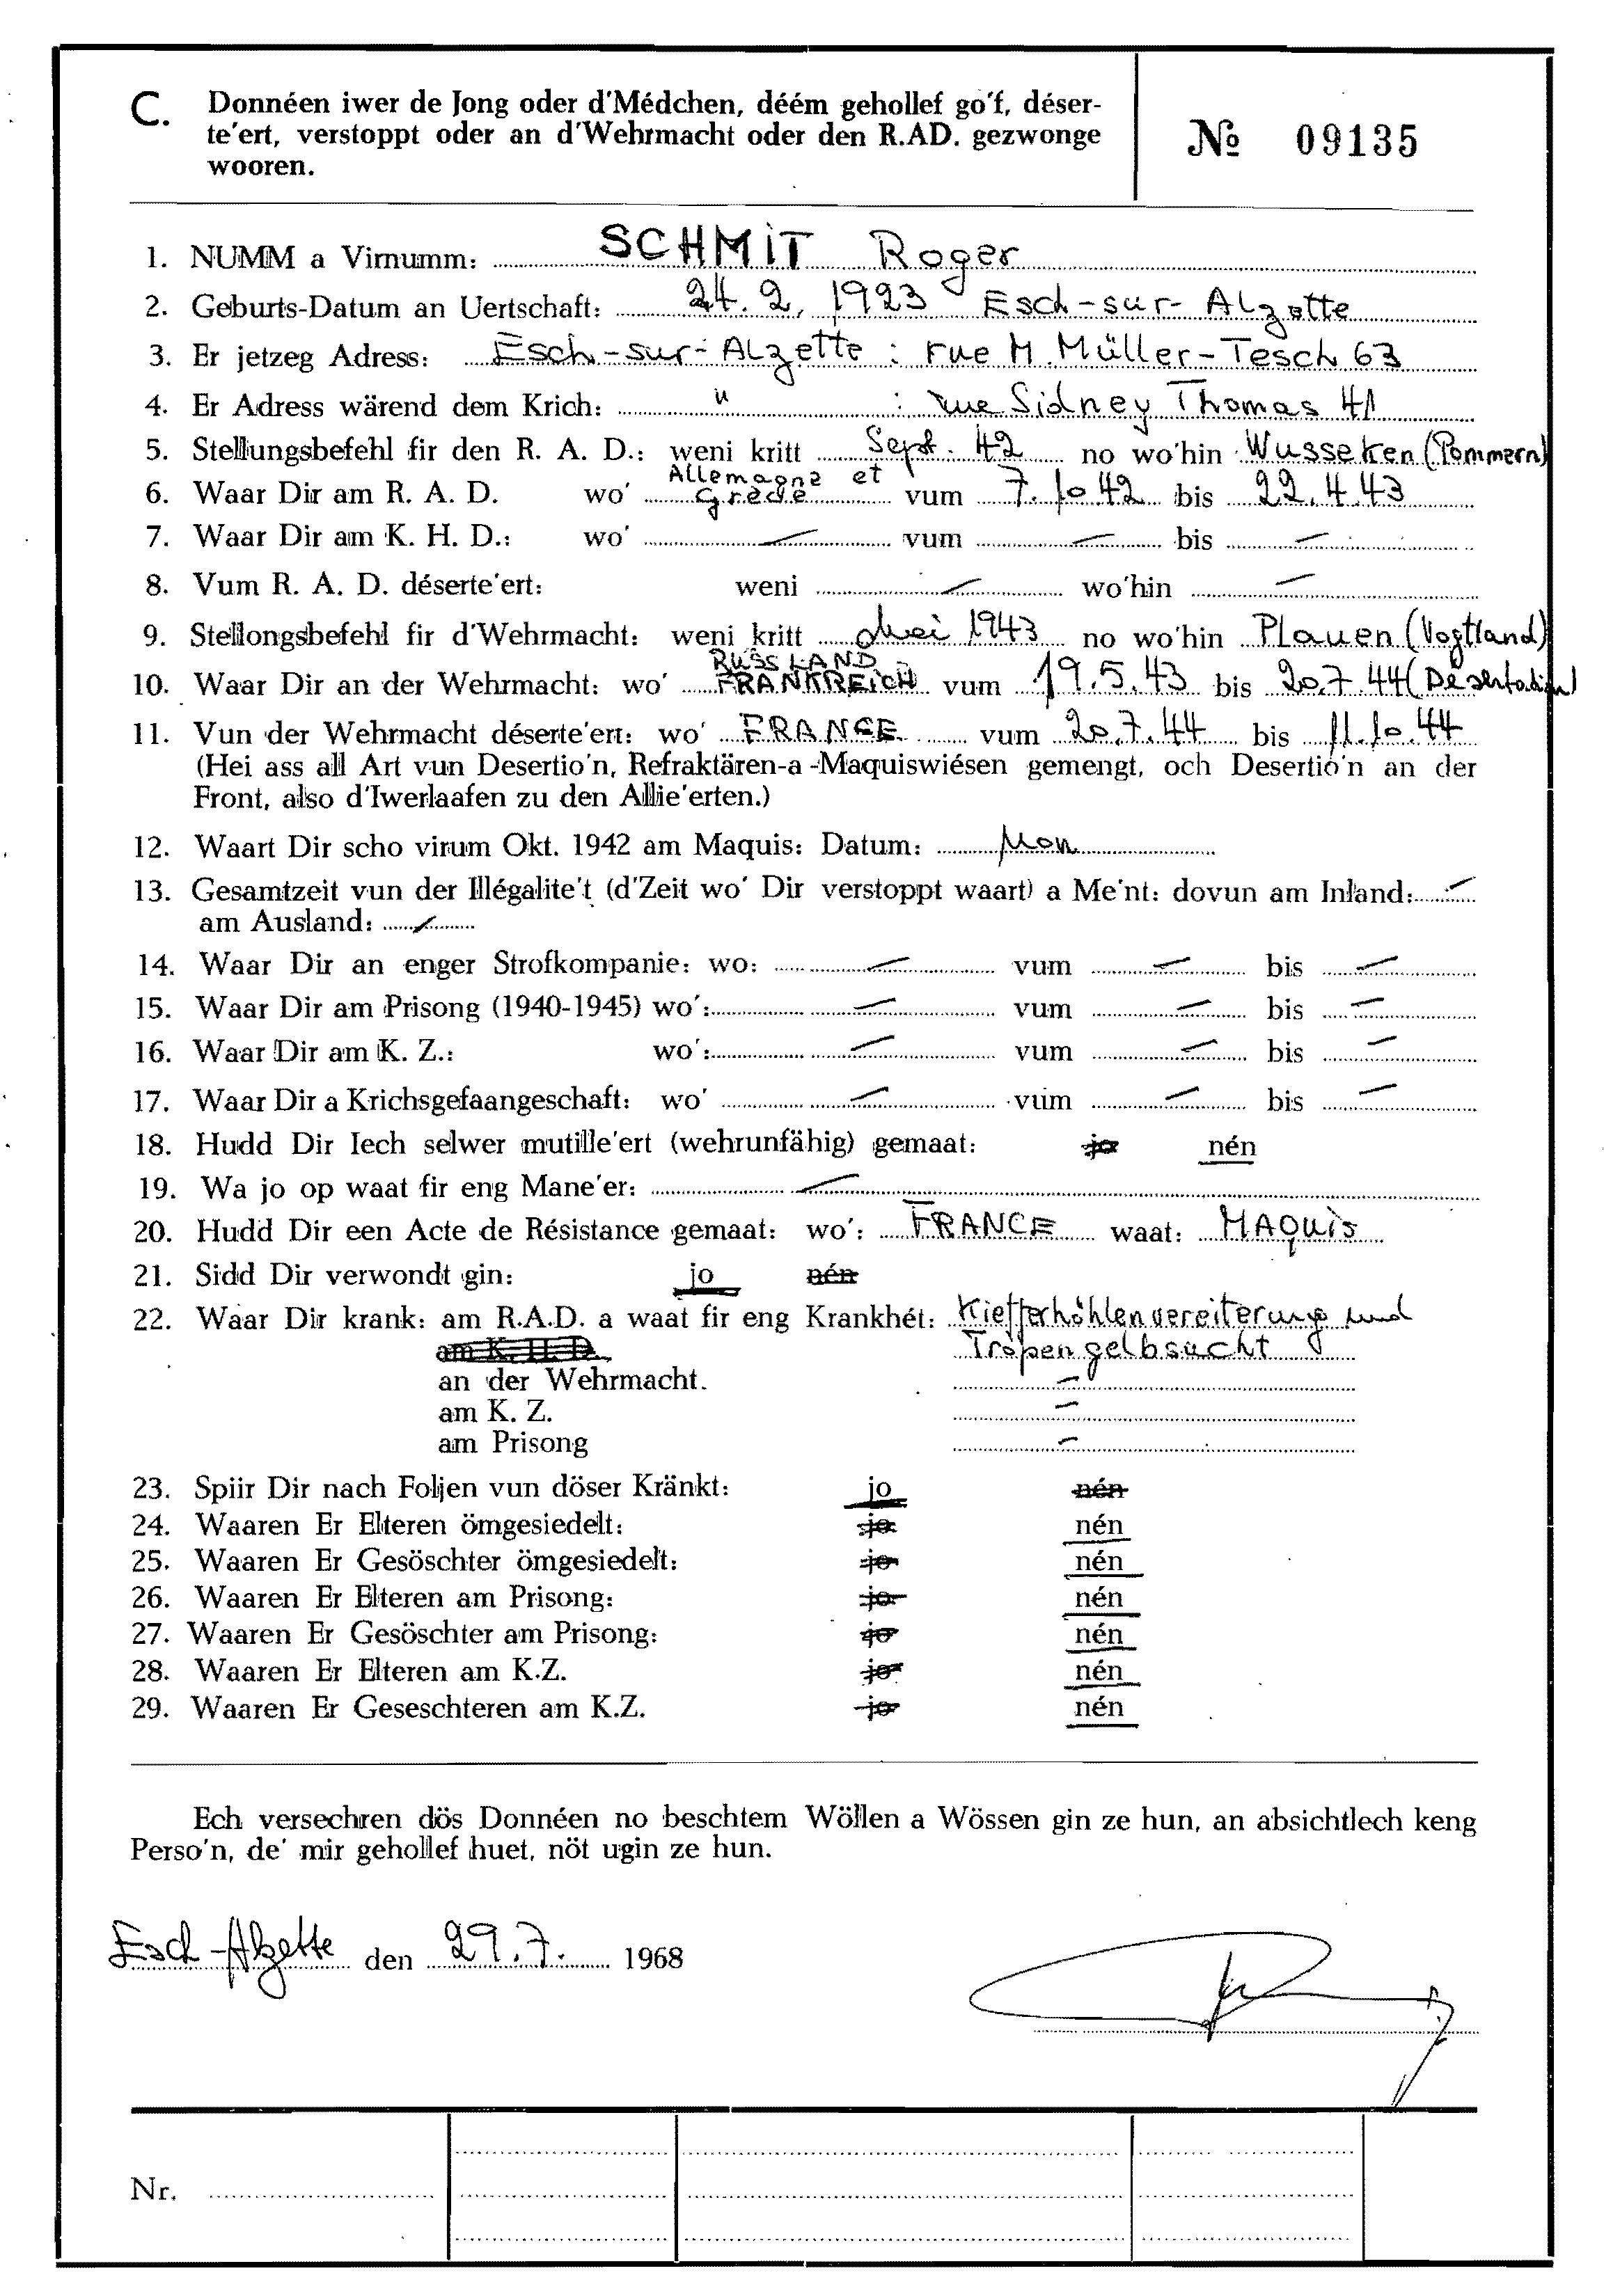 C. Donnéen iwer de Jong oder d'Médchen, déém gehollef go'f, déser-
te'ert, verstoppt oder an d'Wehrmacht oder den R.AD. gezwonge
wooren.
№ 09135
1. NUMM a Virnumm: SCHMIT Roger
2. Geburts-Datum an Uertschaft: 24.2.1923 Esch-sur-Alzette
3. Er jetzeg Adress: Esch-sur-Alzette : rue M. Müller-Tesch 63
4. Er Adress wärend dem Krich: " : rue Sidney Thomas 41
5. Stellungsbefehl fir den R. A. D.: weni kritt Sept. 42 no wo'hin Wusseken (Pommern)
6. Waar Dir am R. A. D. wo' Allemagne et Grèce vum 7.10.42 bis 22.4.43
7. Waar Dir am K. H. D.: wo' — vum — bis —
8. Vum R. A. D. déserte'ert: weni — wo'hin —
9. Stellongsbefehl fir d'Wehrmacht: weni kritt Mai 1943 no wo'hin Plauen (Vogtland)
10. Waar Dir an der Wehrmacht: wo' RUSSLAND FRANKREICH vum 19.5.43 bis 20.7.44 (Desertation)
11. Vun der Wehrmacht déserte'ert: wo' FRANCE vum 20.7.44 bis 11.10.44
(Hei ass all Art vun Desertio'n, Refraktären-a-Maquiswiésen gemengt, och Desertio'n an der
Front, also d'Iwerlaafen zu den Allie'erten.)
12. Waart Dir scho virum Okt. 1942 am Maquis: Datum: Non
13. Gesamtzeit vun der Illégalite't (d'Zeit wo' Dir verstoppt waart) a Me'nt: dovun am Inland: —
am Ausland: —
14. Waar Dir an enger Strofkompanie: wo: — vum — bis —
15. Waar Dir am Prisong (1940-1945) wo': — vum — bis —
16. Waar Dir am K. Z.: wo': — vum — bis —
17. Waar Dir a Krichsgefaangeschaft: wo' — vum — bis —
18. Hudd Dir Iech selwer mutille'ert (wehrunfähig) gemaat: jo nén
19. Wa jo op waat fir eng Mane'er: —
20. Hudd Dir een Acte de Résistance gemaat: wo': FRANCE waat: MAQUIS
21. Sidd Dir verwondt gin: jo nén
22. Waar Dir krank: am R.A.D. a waat fir eng Krankhét: Kiefferhöhlenvereiterung und
am K. H. D. Tropengelbsucht
an der Wehrmacht. —
am K. Z. —
am Prisong —
23. Spiir Dir nach Foljen vun döser Kränkt: jo nén
24. Waaren Er Elteren ömgesiedelt: jo nén
25. Waaren Er Gesöschter ömgesiedelt: jo nén
26. Waaren Er Elteren am Prisong: jo nén
27. Waaren Er Gesöschter am Prisong: jo nén
28. Waaren Er Elteren am K.Z. jo nén
29. Waaren Er Geseschteren am K.Z. jo nén
Ech versechren dös Donnéen no beschtem Wöllen a Wössen gin ze hun, an absichtlech keng
Perso'n, de' mir gehollef huet, nöt ugin ze hun.
Esch-Alzette den 29.7. 1968
Nr.